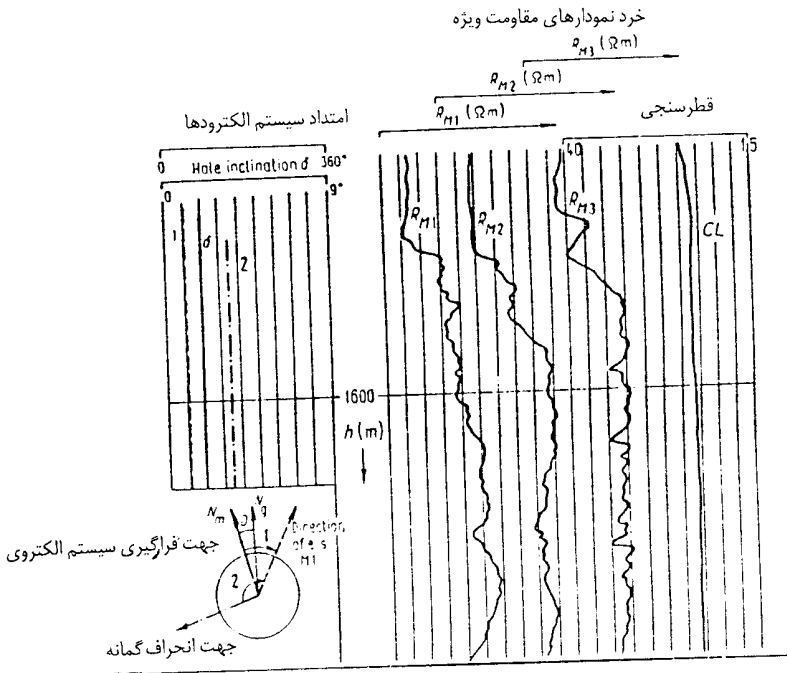 خرد نمودارهای مقاومت ویژه
R_M3 (Ωm)
R_M2 (Ωm)
R_M1 (Ωm)
امتداد سیستم الکترودها
قطرسنجی
0 Hole inclination δ 360°
0 9°
40 1,5
1 δ 2
R_M1 R_M2 R_M3 CL
1600
h (m)
N_m D N_g
1
2
Direction of e.s. M1
جهت قرارگیری سیستم الکتروی
جهت انحراف گمانه